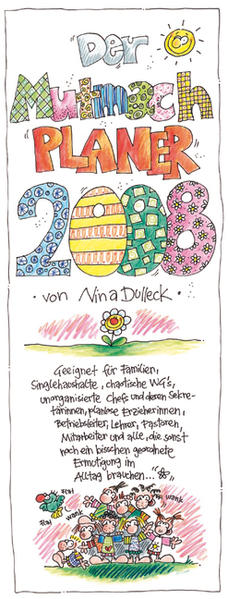 Der
Mutmach
PLANER
2008
• von Nina Dulleck •
Geeignet für Familien,
Singlehaushalte, chaotische WG's,
unorganisierte Chefs und deren Sekre-
tärinnen, planlose Erzieherinnen,
Betriebsleiter, Lehrer, Pastoren,
Mitarbeiter und alle, die sonst
noch ein bisschen geordnete
Ermutigung im
Alltag brauchen..."